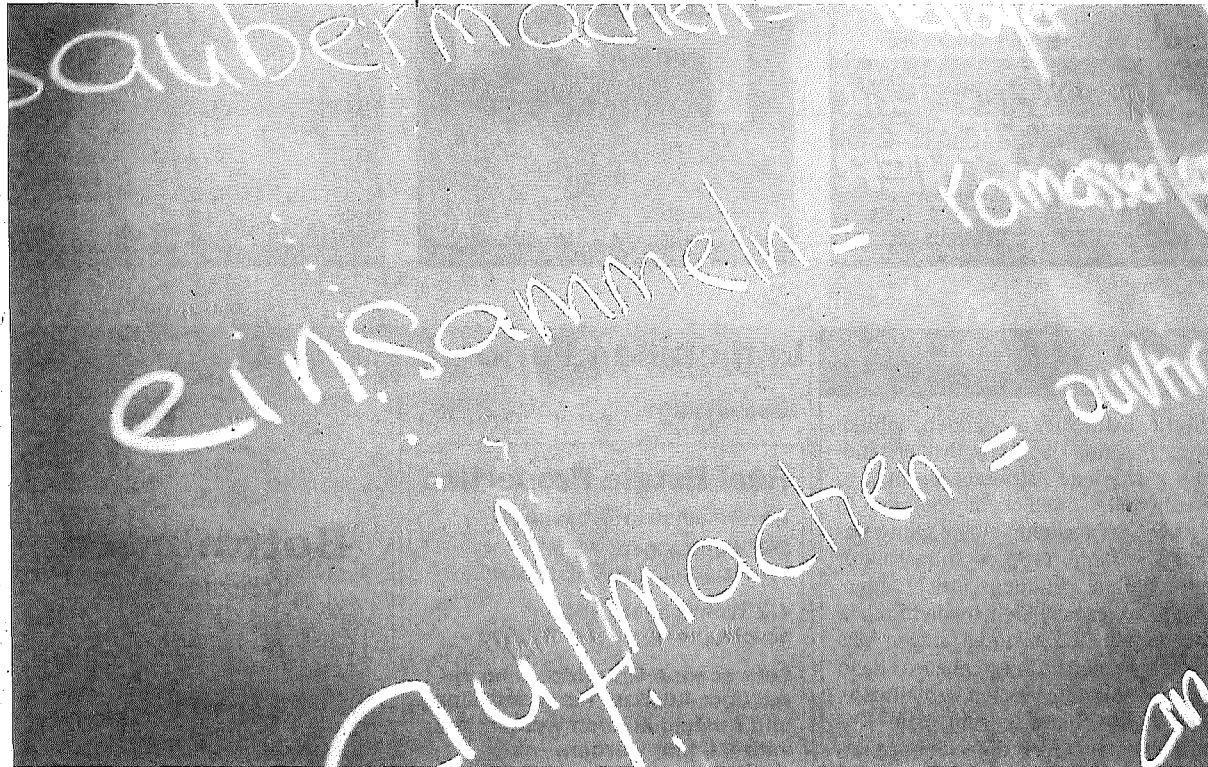 saubermachen =
einsammeln = ramasser/
aufmachen =